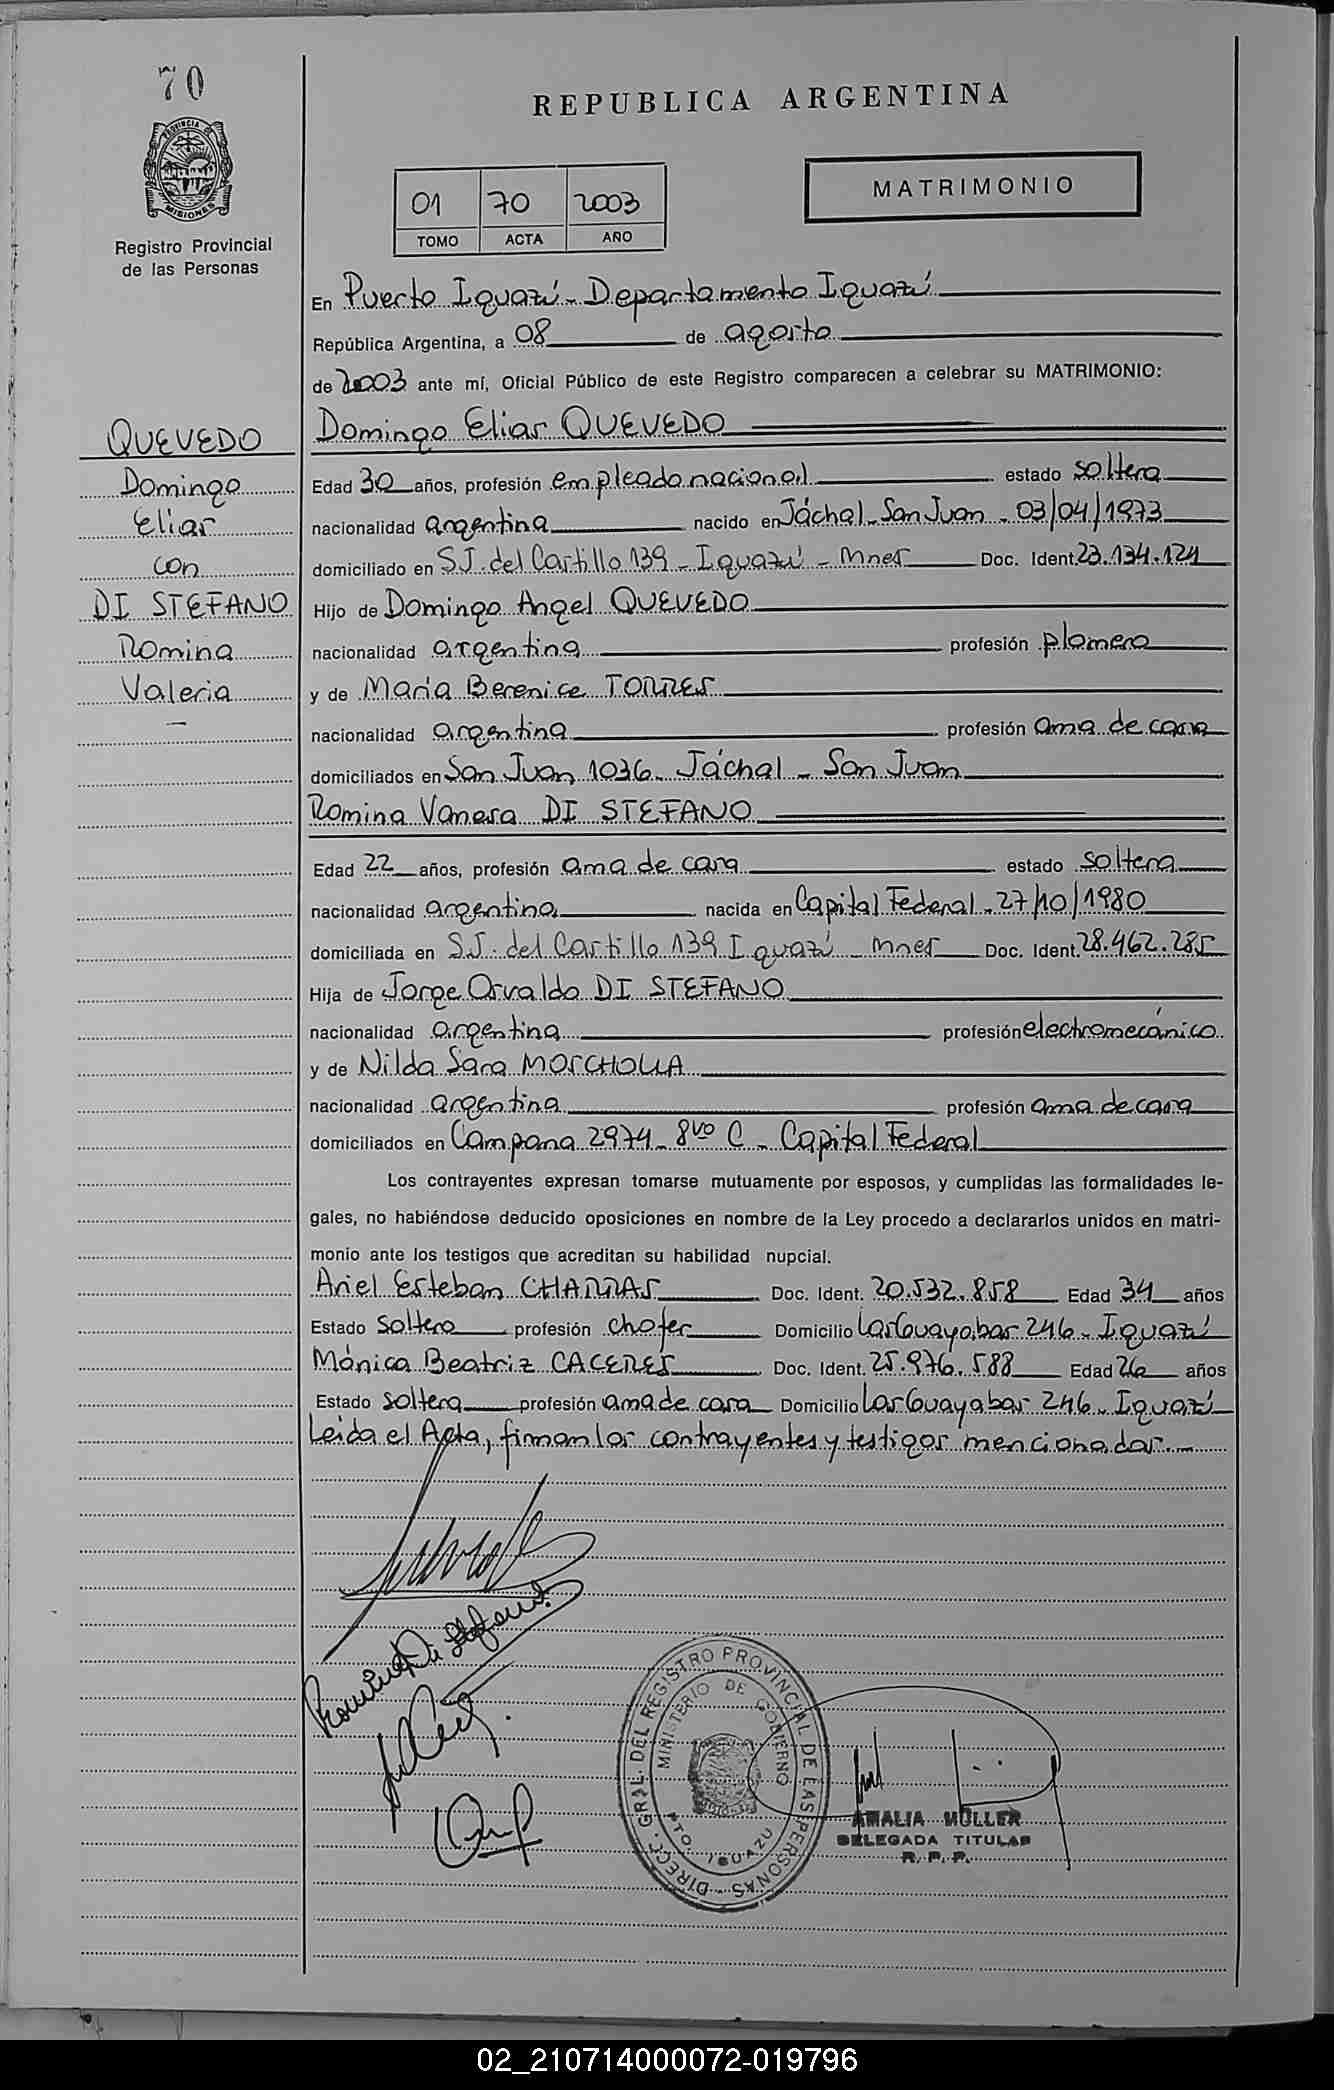 70
PROVINCIA DE
MISIONES
Registro Provincial
de las Personas
REPUBLICA ARGENTINA
01 70 2003
TOMO ACTA AÑO
MATRIMONIO
En Puerto Iguazú - Departamento Iguazú
República Argentina, a 08 de agosto
de 2003 ante mí, Oficial Público de este Registro comparecen a celebrar su MATRIMONIO:
QUEVEDO
Domingo
Elias
con
DI STEFANO
Romina
Valeria
Domingo Elias QUEVEDO
Edad 30 años, profesión empleado nacional estado soltero
nacionalidad argentina nacido en Jáchal - San Juan - 03/04/1973
domiciliado en S.J. del Castillo 139 - Iguazú - Mnes Doc. Ident. 23.134.124
Hijo de Domingo Angel QUEVEDO
nacionalidad argentina profesión plomero
y de María Berenice TORRES
nacionalidad argentina profesión ama de casa
domiciliados en San Juan 1036 - Jáchal - San Juan
Romina Vanesa DI STEFANO
Edad 22 años, profesión ama de casa estado soltera
nacionalidad argentina nacida en Capital Federal - 27/10/1980
domiciliada en S.J. del Castillo 139 Iguazú - Mnes Doc. Ident. 28.462.285
Hija de Jorge Osvaldo DI STEFANO
nacionalidad argentina profesión electromecánico
y de Nilda Sara MOSCHOLLA
nacionalidad argentina profesión ama de casa
domiciliados en Campana 2974 - 8vo C - Capital Federal
Los contrayentes expresan tomarse mutuamente por esposos, y cumplidas las formalidades le-
gales, no habiéndose deducido oposiciones en nombre de la Ley procedo a declararlos unidos en matri-
monio ante los testigos que acreditan su habilidad nupcial.
Ariel Esteban CHARRAS Doc. Ident. 20.532.858 Edad 34 años
Estado soltero profesión chofer Domicilio Las Guayabas 246 - Iguazú
Mónica Beatriz CACERES Doc. Ident. 25.976.588 Edad 26 años
Estado soltera profesión ama de casa Domicilio Las Guayabas 246 - Iguazú
Leída el Acta, firman los contrayentes y testigos mencionados.
Romina Di Stefano
DIRECC. GRAL. DEL REGISTRO PROVINCIAL DE LAS PERSONAS
MINISTERIO DE GOBIERNO
PTO. IGUAZU
AMALIA MÜLLER
DELEGADA TITULAR
R. P. P.
02_210714000072-019796